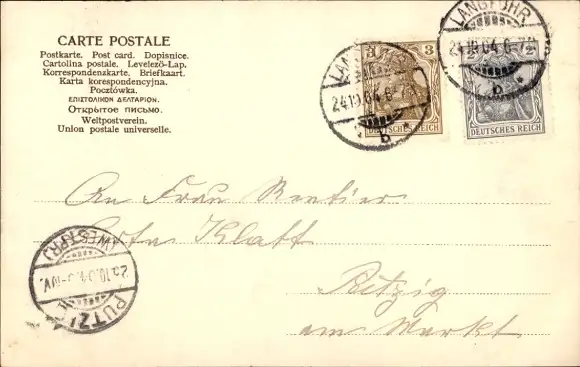 CARTE POSTALE
Postkarte. Post card. Dopisnice.
Cartolina postale. Levelező-Lap.
Korrespondenzkarte. Briefkaart.
Karta korespondencyjna.
Pocztówka.
ΕΠΙΣΤΟΛΙΚΟΝ ΔΕΛΤΑΡΙΟΝ.
Открытое письмо.
Weltpostverein.
Union postale universelle.
3 3
DEUTSCHES REICH
2 2
DEUTSCHES REICH
LANGFUHR
24.10.04.6-7N
* b *
LANGFUHR
24.10.04.6-7N
b *
An Frau Rentier
Klatt
Putzig
am Markt
PUTZIG
25.10.04. -10V.
(WESTPR.)